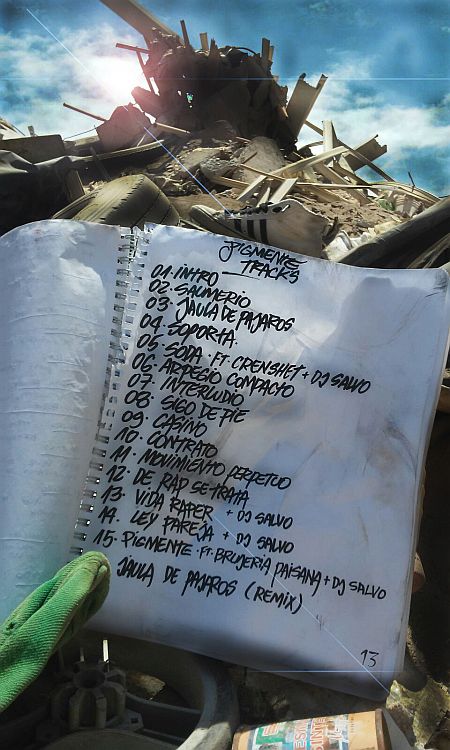 PIGMENTE
TRACKS
01. INTRO
02. SAUMERIO
03. JAULA DE PAJAROS
04. SOPORTA
05. SODA · FT. CRENSHET + DJ SALVO
06. ARPEGIO COMPACTO
07. INTERLUDIO
08. SIGO DE PIE
09. CASINO
10. CONTRATO
11. MOVIMIENTO PERPETUO
12. DE RAP SE TRATA
13. VIDA RAPER + DJ SALVO
14. LEY PAREJA + DJ SALVO
15. PIGMENTE · FT. BRUJERIA PAISANA + DJ SALVO
JAULA DE PAJAROS (REMIX)
13